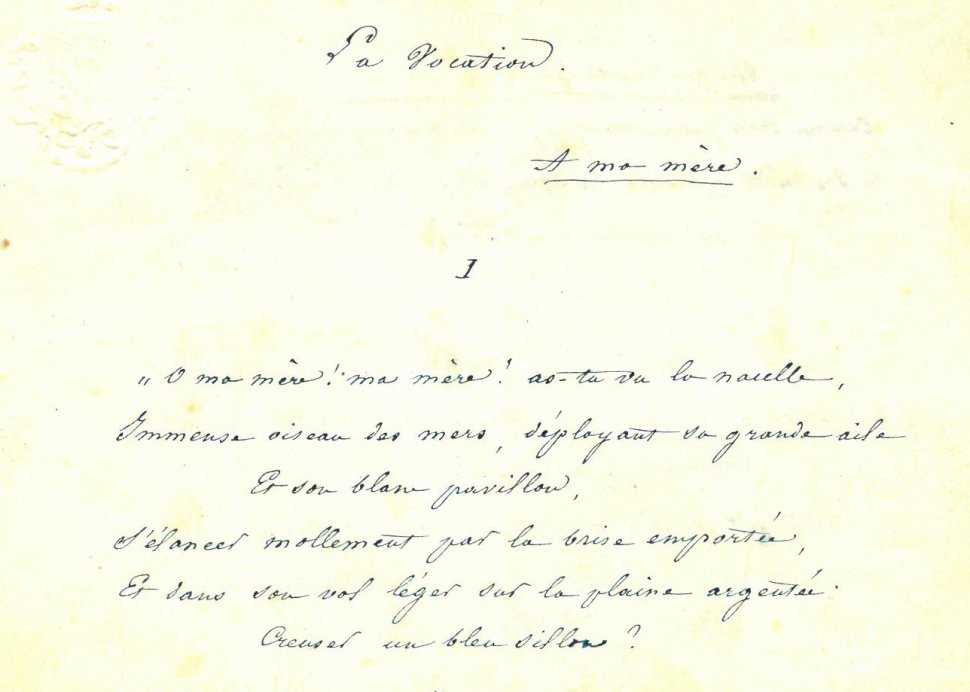 La Vocation.
A ma mère.
I
„ O ma mère! ma mère! as-tu vu la nacelle,
Immense oiseau des mers, déployant sa grande aile
Et son blanc pavillon,
S'élancer mollement par la brise emportée,
Et dans son vol léger sur la plaine argentée
Creuser un bleu sillon?